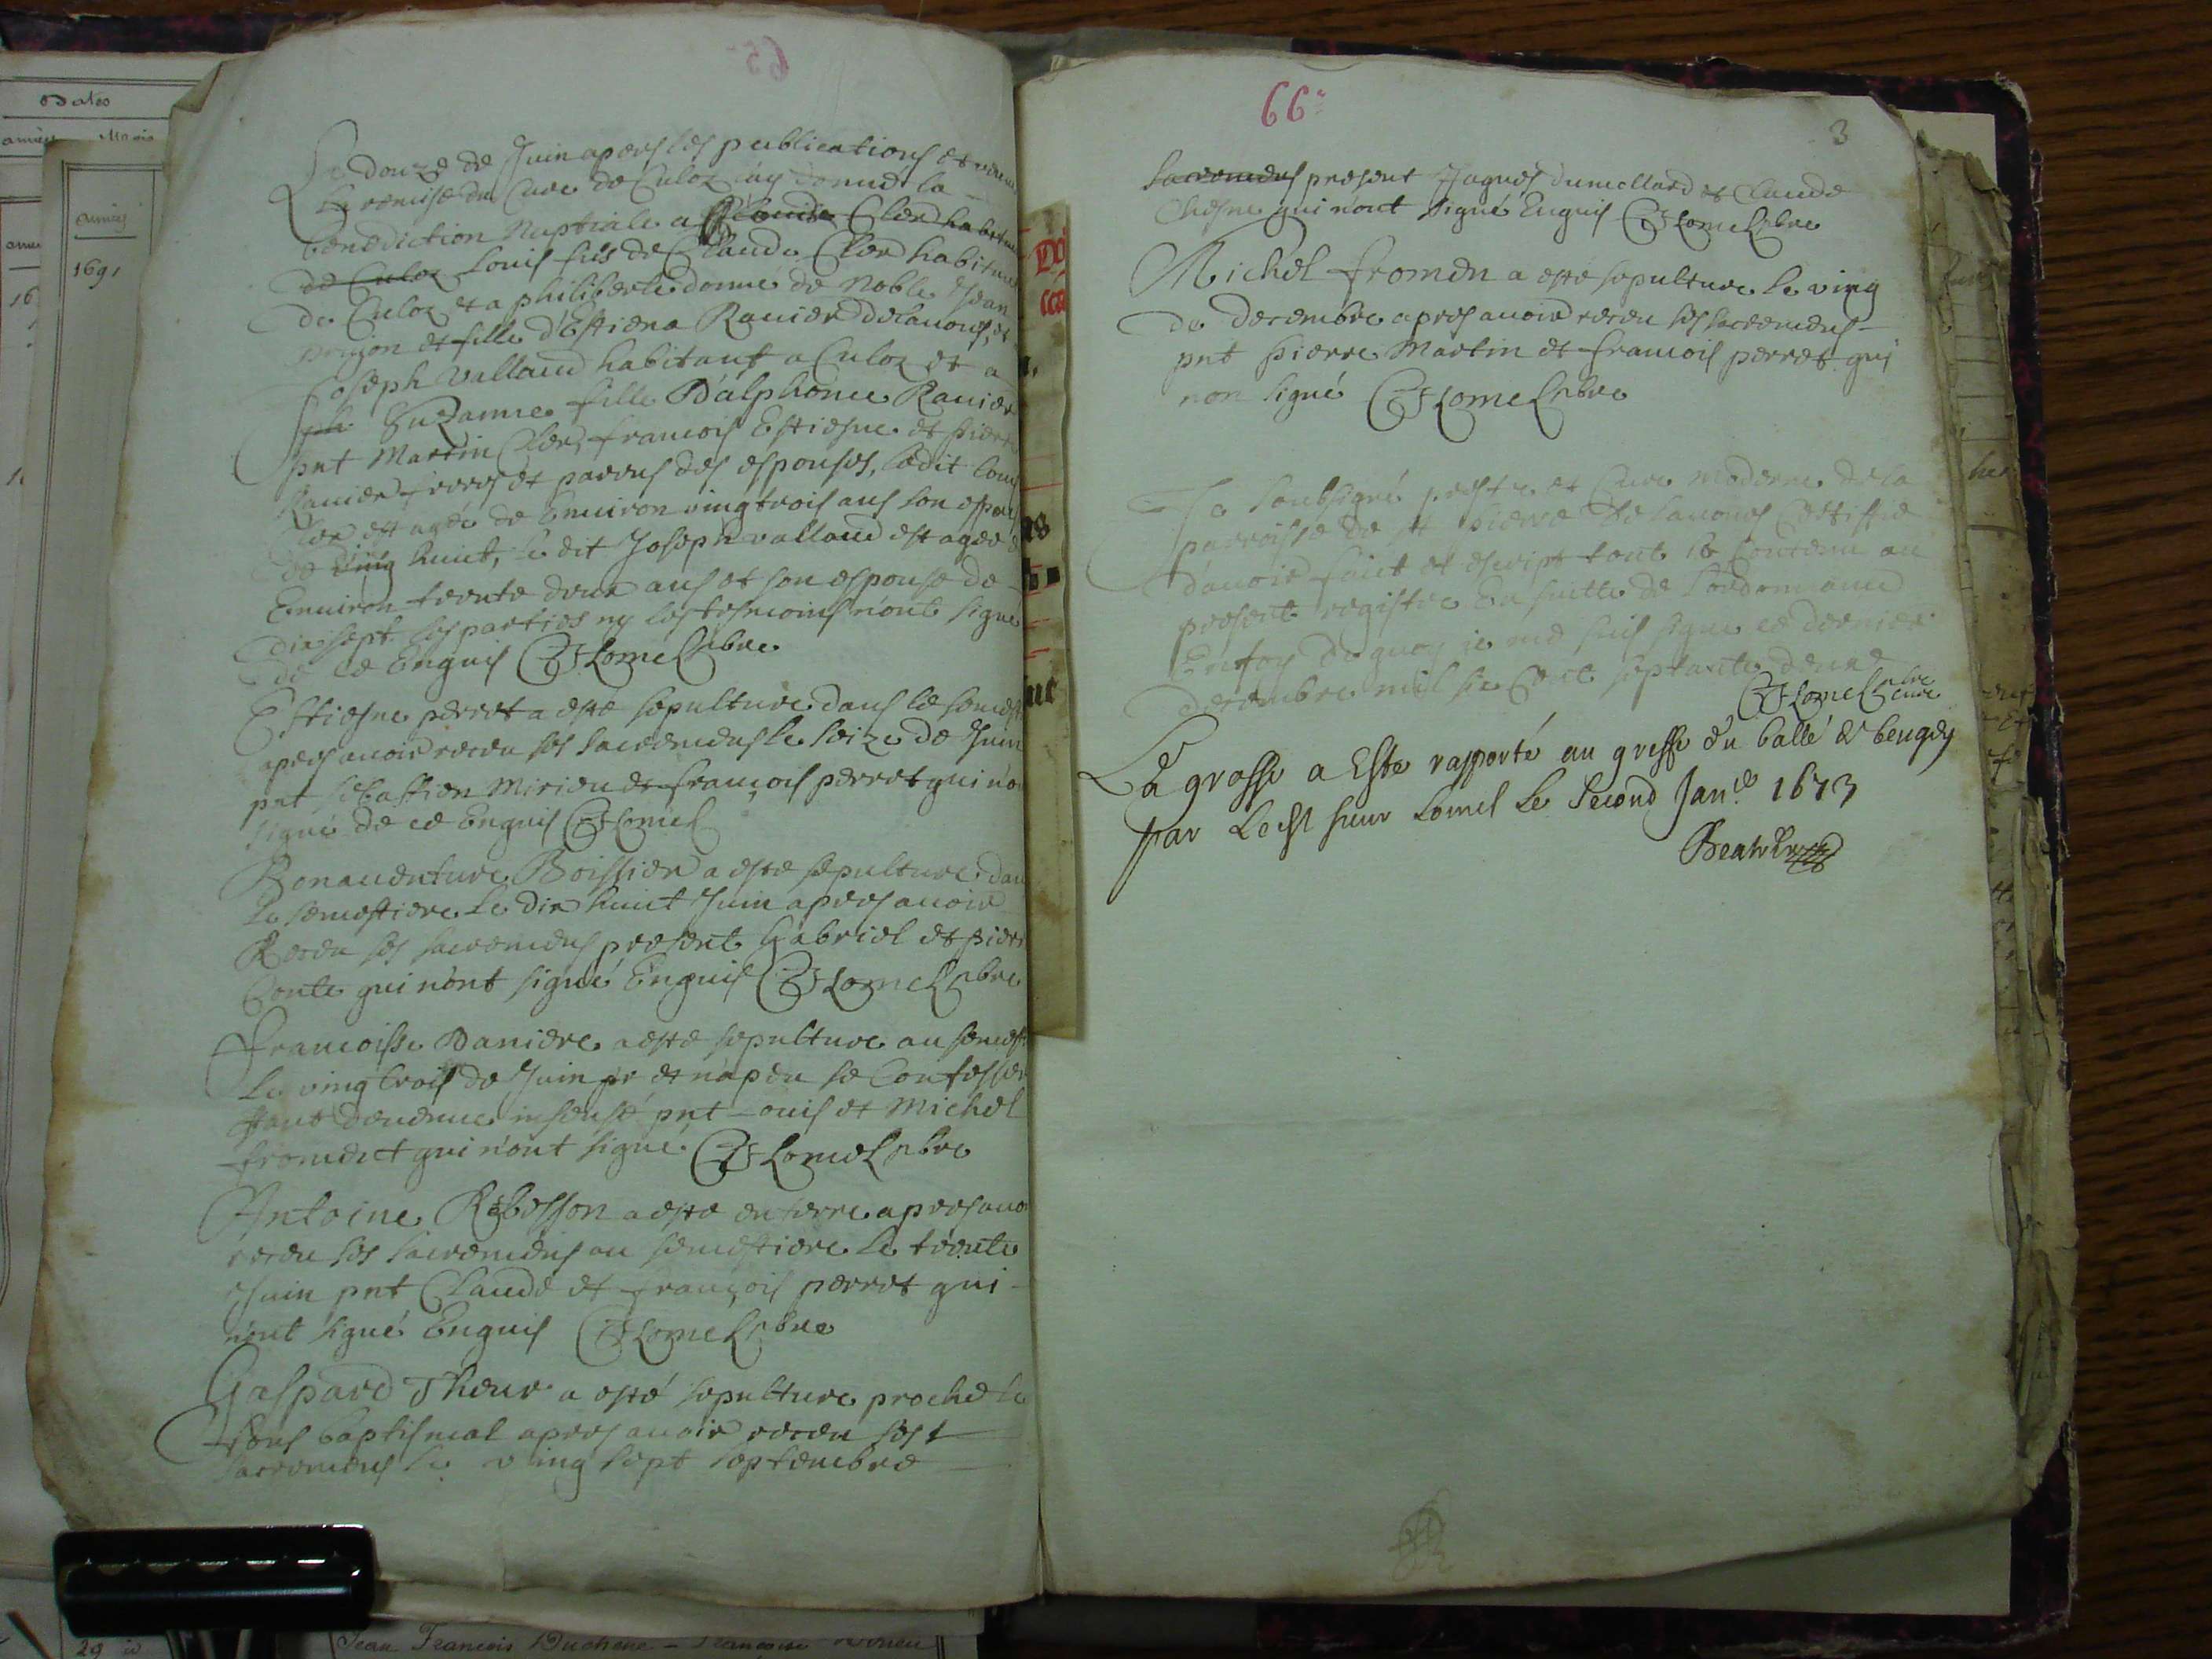 65
Le douze de Juin apres les publications et veu
la remise du Cure de Culoz j'ay donné la
benediction Nuptiale a Claude Cler habitant
de Culoz Louis fils de Claude Cler habitant
de Culoz et a philiberte donné de Noble Jean
et fille d'Estiene Ravier de lavours, et
Joseph Vallaud habitant a Culoz et a
Suzanne fille D'alphonce Ravier
pnt Martin Cler, francois Estiesne et pierre
Ravier freres et parens des espouses, ledit Louis
Cler est agée de Environ vingtrois ans son espouse
de ving huict, le dit Joseph vallaud est agée d
Environ trente deux ans et son espouse de
dixsept les parties ny les tesmoins n'ont signé
de ce Enquis Lomel pbre
Estiesne perret a esté sepulture dans le semest
apres avoir receu ses sacremens le seize de Juin
pnt sebastien Mirieu et françois perret qui n'on
signé de ce Enquis Lomel
Bonaventure Boissier a esté sepulture dan
le semestiere le dix huict Juin apres avoir
Receu ses sacremens present Gabriel et pierre
Conte qui n'ont signé Enquis Lomel pbre
francoisse Daniere a esté sepulture au semest
le vingtrois de Juin et n'a peu se Confesser
stant devenue insensé pnt Louis et Michel
froment qui n'ont signé Lomel pbre
Antoine Rebosson a esté enterre apres avo
receu ses sacremens au semestiere le trente
Juin pnt Claude et françois perret qui
n'ont signé Enquis Lomel pbre
Gaspard Theur a esté sepulture proche le
fons baptismal apres avoir receu ses
sacremens le ving sept septembre
66
3
sacremens present Jaques dumollard et Claude
Chesne qui n'ont signé Enquis Lomel pbre
Michel fromen a esté sepulture le ving
de decembre apres avoir receu ses sacremens
pnt pierre Martin et francois perret qui
non signé Lomel pbre
Je soubsigné prestre et Cure moderne de la
parroisse de st pierre de lavours Certifie
d'avoir faict et escript tout le Contenu au
present registre En suitte de l'ordonnance
En foy de quoy je me suis signe ce dernier
decembre mil six Cent septante deux
Lomel pbre
cure
La grosse a Esté rapporté au greffe du balle de beugey
par ledit sieur Lomel le second Janer 1673
Dates
années Mois
années
1691
29 id
Jean Francois Duchene - Francoise